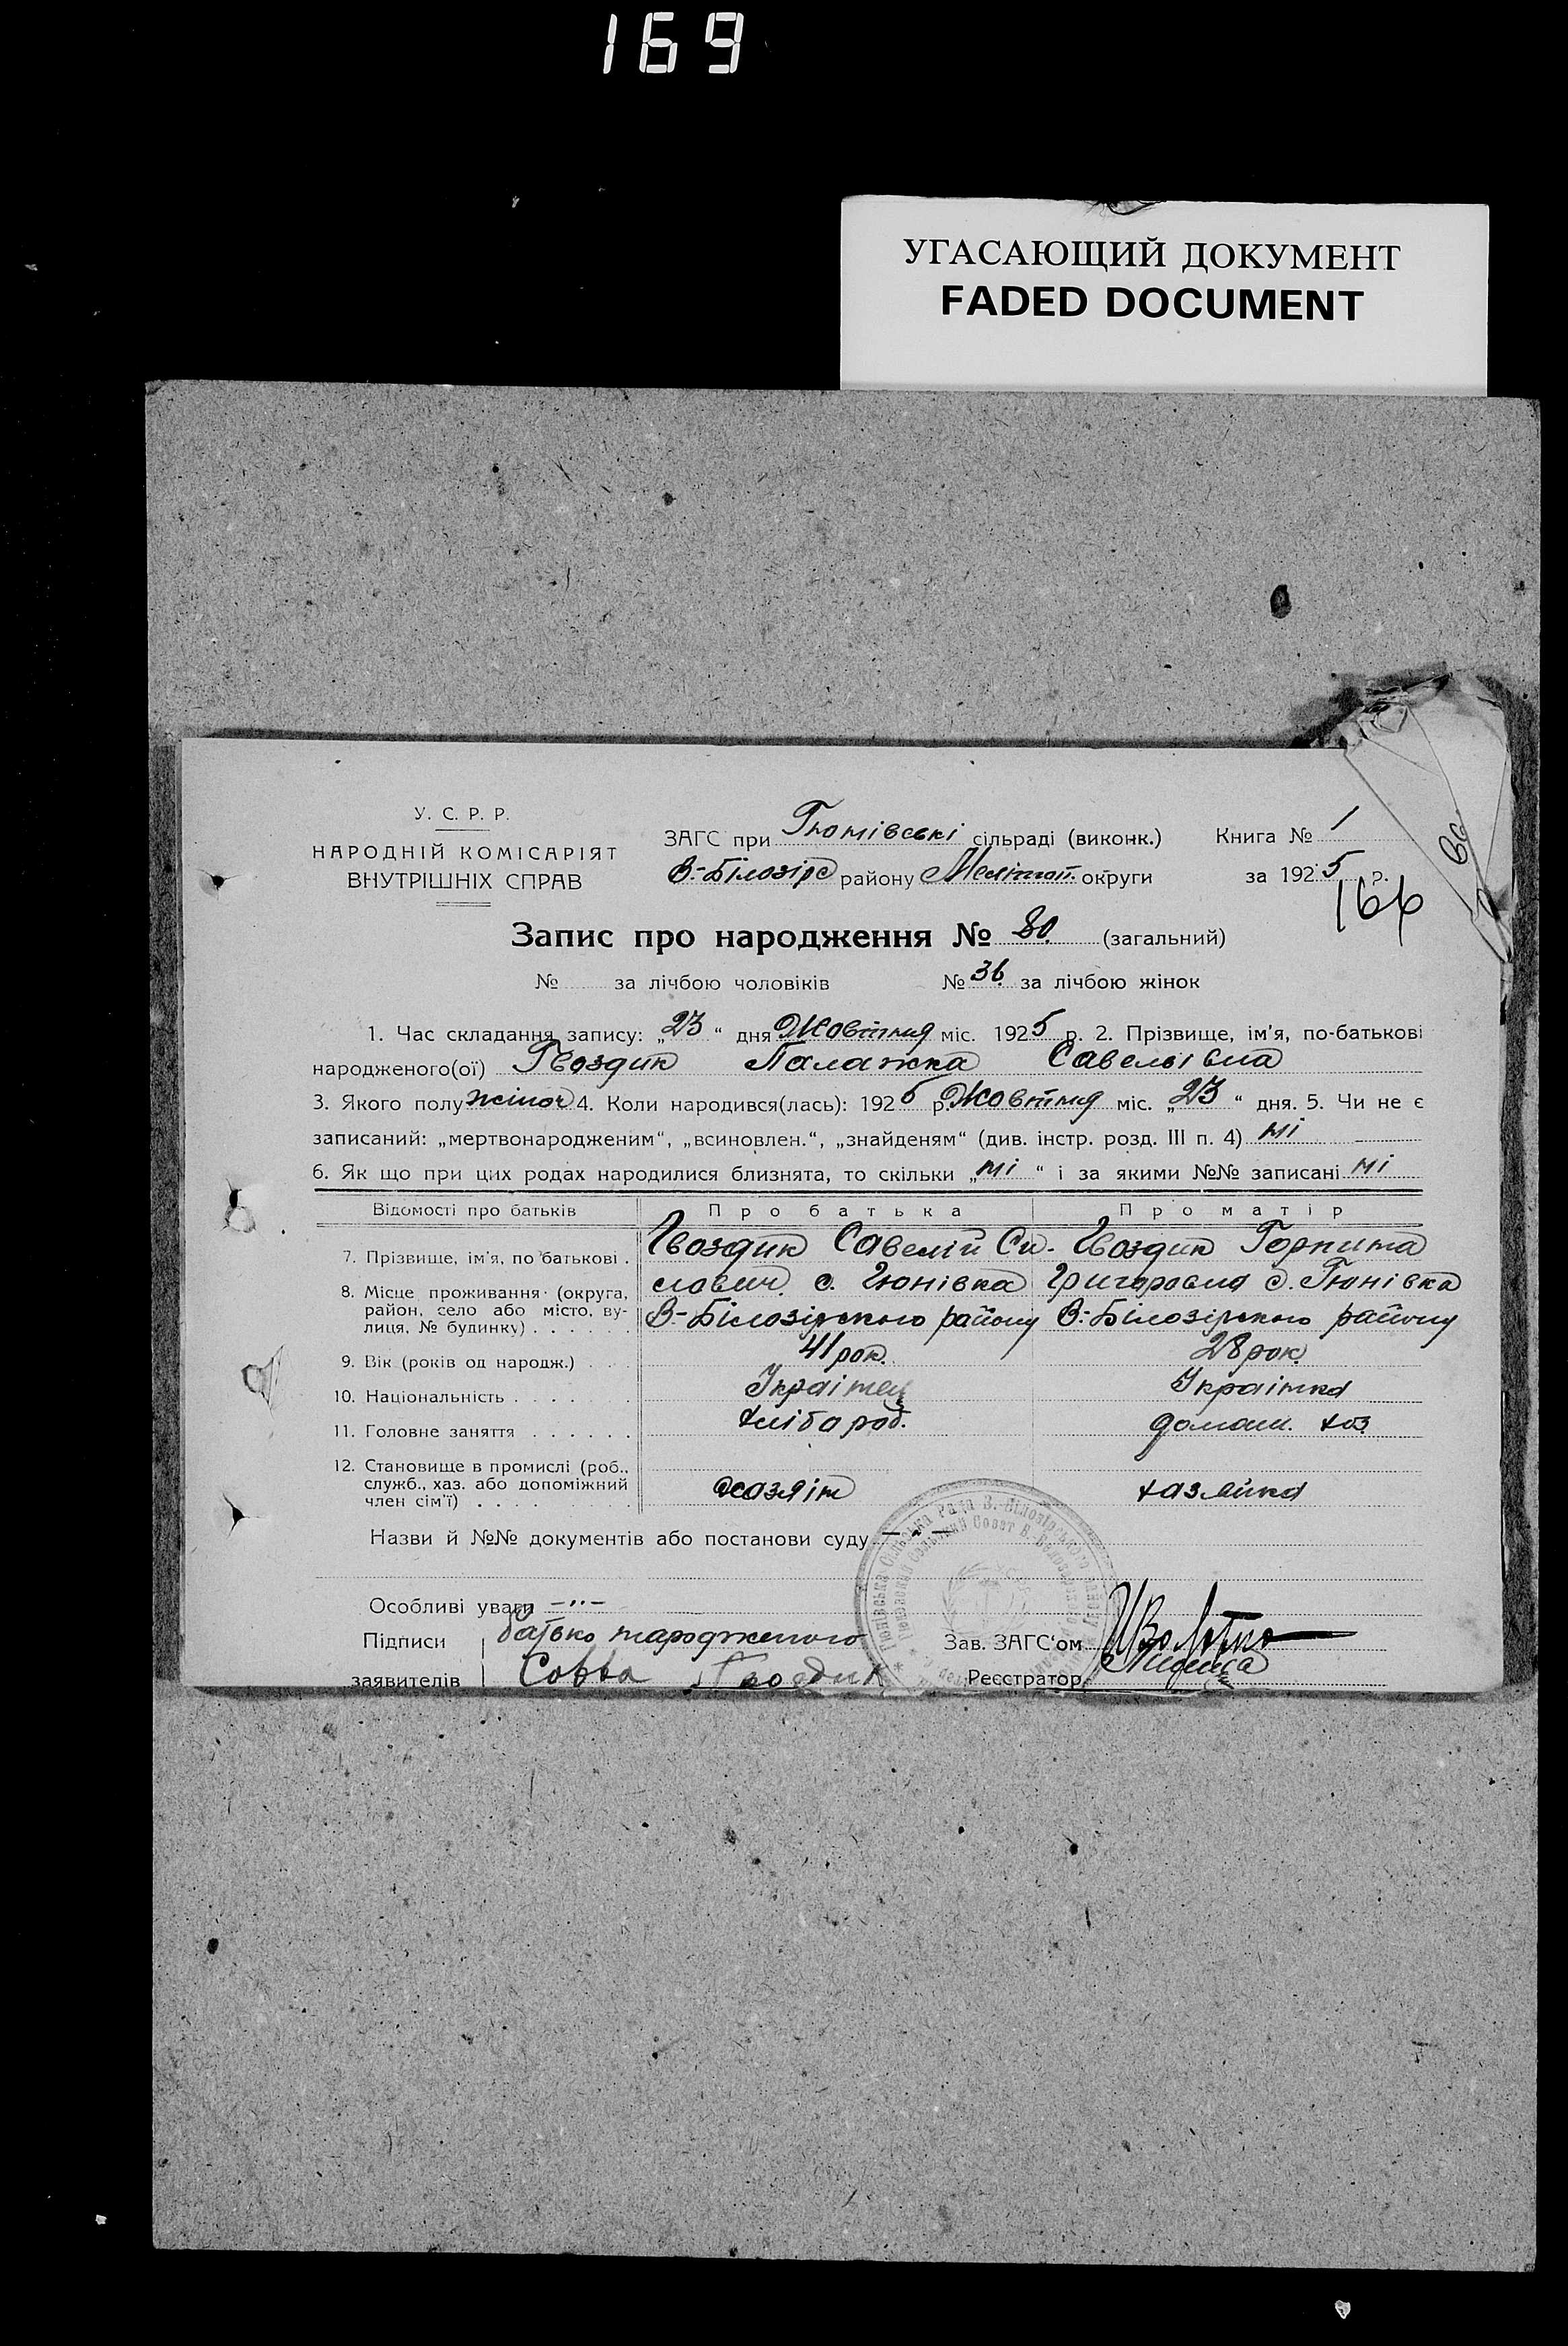 169
УГАСАЮЩИЙ ДОКУМЕНТ
FADED DOCUMENT
У. С. Р. Р.
НАРОДНІЙ КОМІСАРІЯТ
ВНУТРІШНІХ СПРАВ
ЗАГС при Гюнівські сільраді (виконк.)
В-Білозірс району Мелітоп. округи
Книга № 1
за 1925 р.
166
Запис про народження № 80. (загальний)
№ за лічбою чоловіків № 36. за лічбою жінок
1. Час складання запису: „23“ дня Жовтня міс. 1925 р. 2. Прізвище, ім'я, по-батькові
народженого(ої) Гвоздик Палажка Савельівна
3. Якого полу жіноч 4. Коли народився(лась): 1925 р. Жовтня міс. „23“ дня. 5. Чи не є
записаний: „мертвонародженим“, „всиновлен.“, „знайденям“ (див. інстр. розд. III п. 4) ні
6. Як що при цих родах народилися близнята, то скільки „ні“ і за якими №№ записані ні
Відомості про батьків Про батька Про матір
7. Прізвище, ім'я, по батькові . Гвоздик Савелій Си- Гвоздик Горпина
8. Місце проживання (округа, район, село або місто, вулиця, № будинку) . . . . . . слович. с. Гюнівка Григоровна с. Гюнівка
В-Білозірського району В-Білозірського району
9. Вік (років од народж.) . . . 41 рок. 28 рок.
10. Національність . . . . . Українец Українка
11. Головне заняття . . . . . . хлібороб. домаш. хоз.
12. Становище в промислі (роб., служб., хаз. або допоміжний член сім'ї) . . . . хазяін хазяйка
Назви й №№ документів або постанови суду — " —
Особливі уваги —"—
Підписи батько народженого Зав. ЗАГС'ом
заявителів Савва Гвоздик Реєстратор